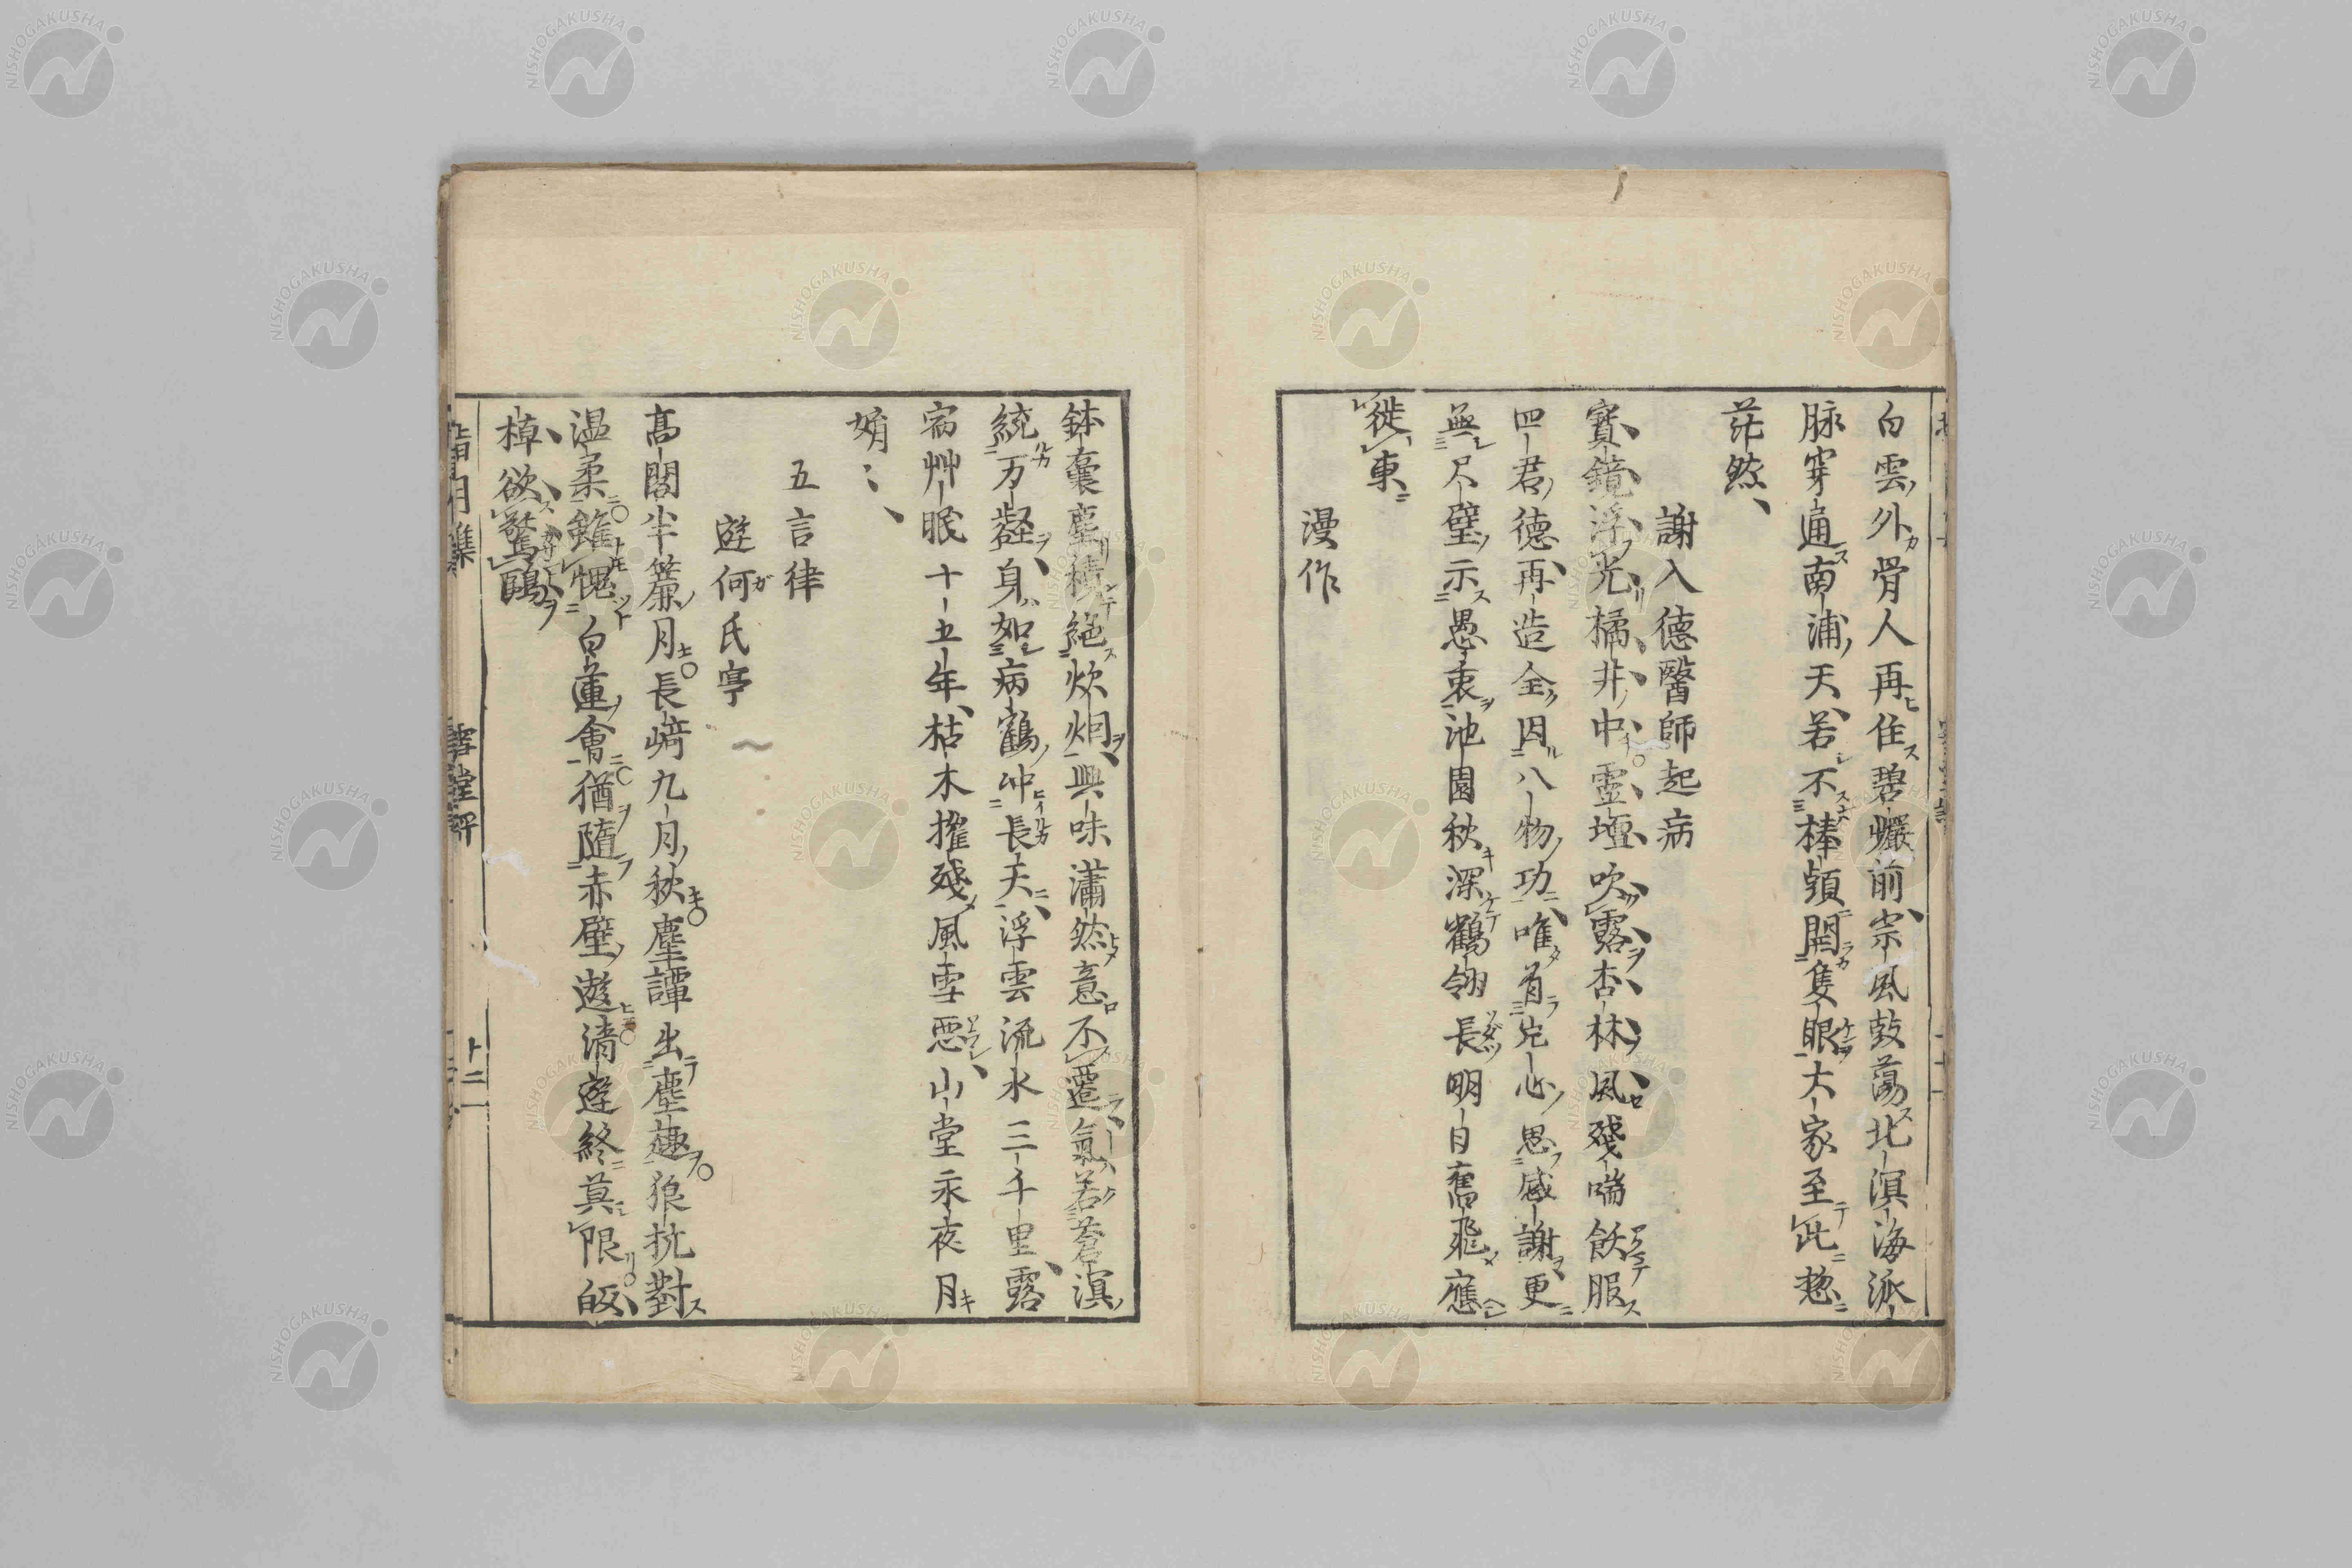 白雲外骨人再住碧巘前宗風鼓蕩北溟海派
脉穿通南浦天若不棒頭開隻眼大家至此惣
茫然
謝入德醫師起病
寶鏡浮光橘井中靈壇吹露杏林風殘喘飲服
四君德再造全因八物功唯有片心思感謝更
無尺璧示愚衷池園秋深鶴翎長明日奮飛應
徙東
漫作
鉢囊塵積絕炊烟興味瀟然意不遷氣若蒼溟
統万壑身如病鶴冲長天浮雲流水三千里露
宿艸眠十五年枯木摧殘風雪惡山堂永夜月
娟〻
五言律
遊何氏亭
髙閣半簾月長崎九月秋塵譚出塵趣狼抗對
温柔雖愧白蓮會猶隨赤壁遊清遊終莫限皈
棹欲驚鷗
指月集
十二